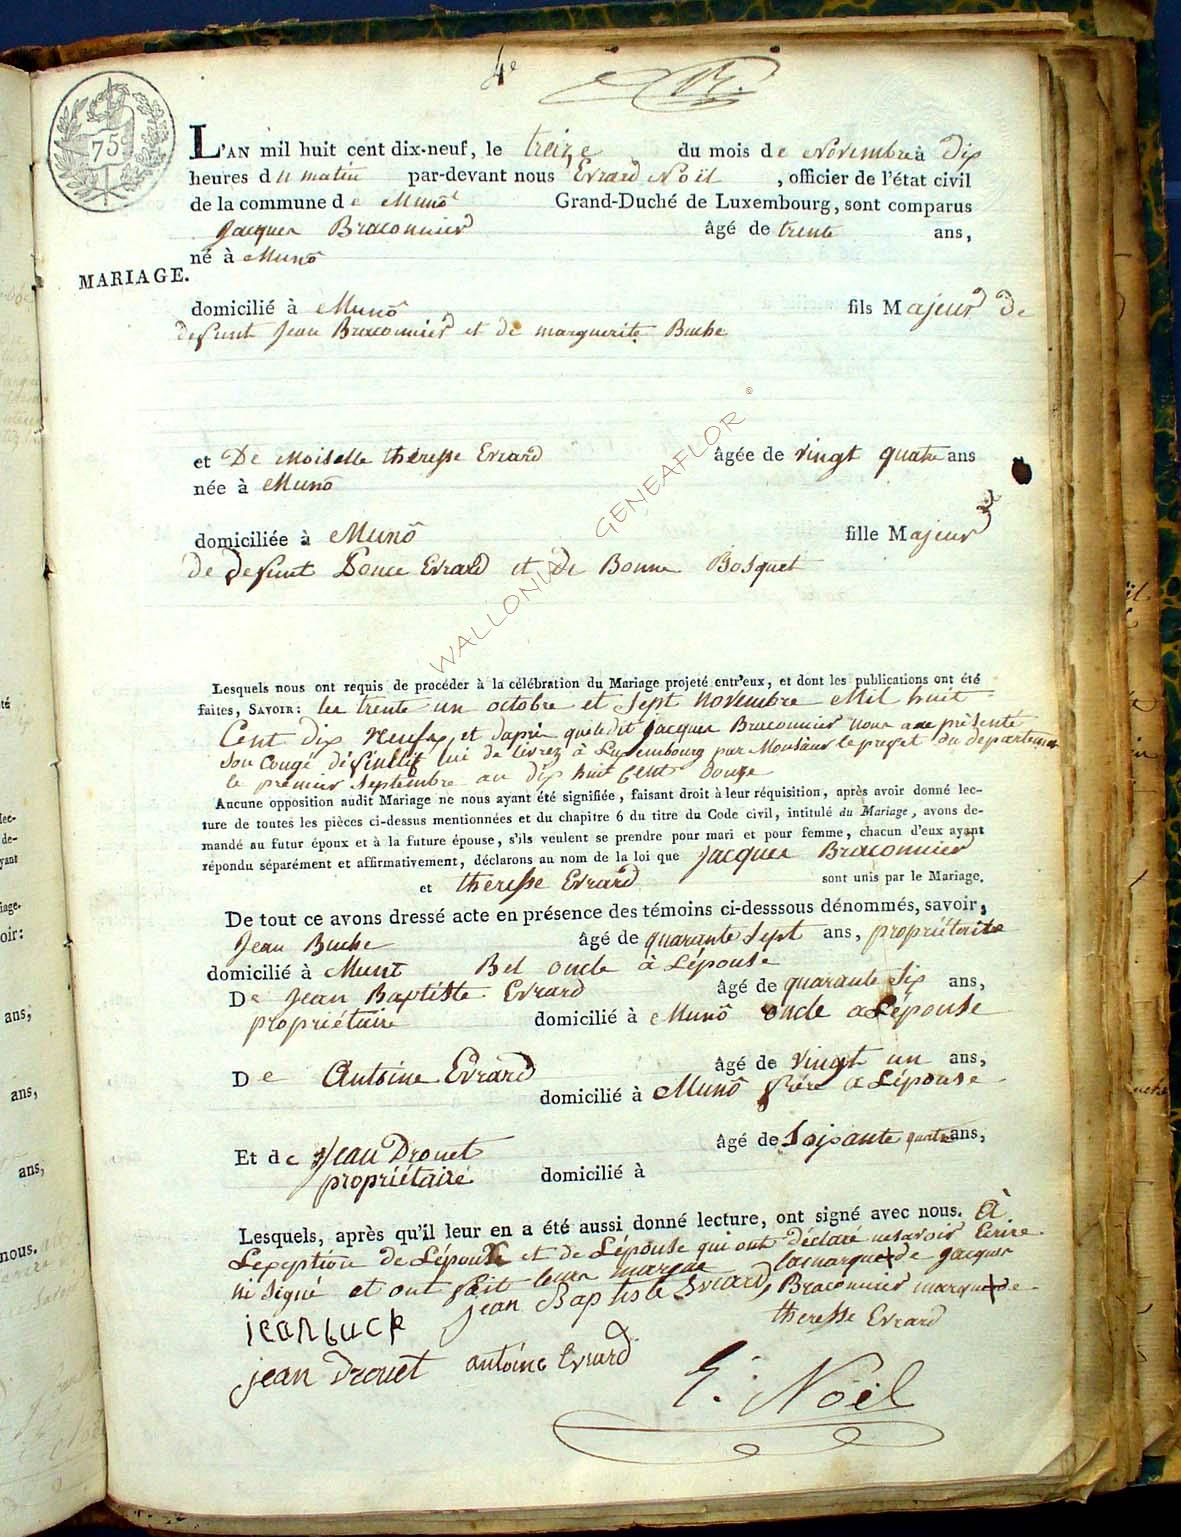 4e
75c
L'AN mil huit cent dix-neuf, le treize du mois de Novembre à dix
heures du matin par-devant nous Evrard Noël , officier de l'état civil
de la commune de Munô Grand-Duché de Luxembourg, sont comparus
Jacques Braconnier âgé de trente ans,
né à Munô
MARIAGE.
domicilié à Munô fils Majeur de
defunt Jean Braconnier et de marguerite Buche
et De Moiselle théresse Evrard âgée de vingt quatre ans
née à Munô
domiciliée à Munô fille Majeur
de defunt Ponce Evrard et de Bonne Bosquet
Lesquels nous ont requis de procéder à la célébration du Mariage projeté entr'eux, et dont les publications ont été
faites, SAVOIR: les trente un octobre et Sept Novembre Mil huit
Cent dix neuf, et daprès que ledit Jacques Braconnier nous a présenté
son Congé définitif lui de livrez à Luxembourg par Monsieur le prefet du departement
le premier Septembre an dix huit Cent douze
Aucune opposition audit Mariage ne nous ayant été signifiée, faisant droit à leur réquisition, après avoir donné lec-
ture de toutes les pièces ci-dessus mentionnées et du chapitre 6 du titre du Code civil, intitulé du Mariage, avons de-
mandé au futur époux et à la future épouse, s'ils veulent se prendre pour mari et pour femme, chacun d'eux ayant
répondu séparément et affirmativement, déclarons au nom de la loi que Jacques Braconnier
et théresse Evrard sont unis par le Mariage.
De tout ce avons dressé acte en présence des témoins ci-desssous dénommés, savoir,
Jean Buche âgé de quarante Sept ans, propriétaire
domicilié à Munô Bel oncle à Lépouse
De Jean Baptiste Evrard âgé de quarante Six ans,
propriétaire domicilié à Munô oncle a Lépouse
De Antoine Evrard âgé de vingt un ans,
domicilié à Munô frére a Lépouse
Et de Jean Drouet âgé de Soixante quatre ans,
propriétaire domicilié à
Lesquels, après qu'il leur en a été aussi donné lecture, ont signé avec nous. À
Lexeption de Lépoux et de Lépouse qui ont déclaré ne savoir Ecrire
ni Signé et ont fait leurs marque la marque + de Jacques
jean Baptiste Evrard, Braconnier marque + de
theresse Evrard
jean buche
jean Drouet antoine Evrard
E. Noël
WALLONIA GENEAFLOR ©